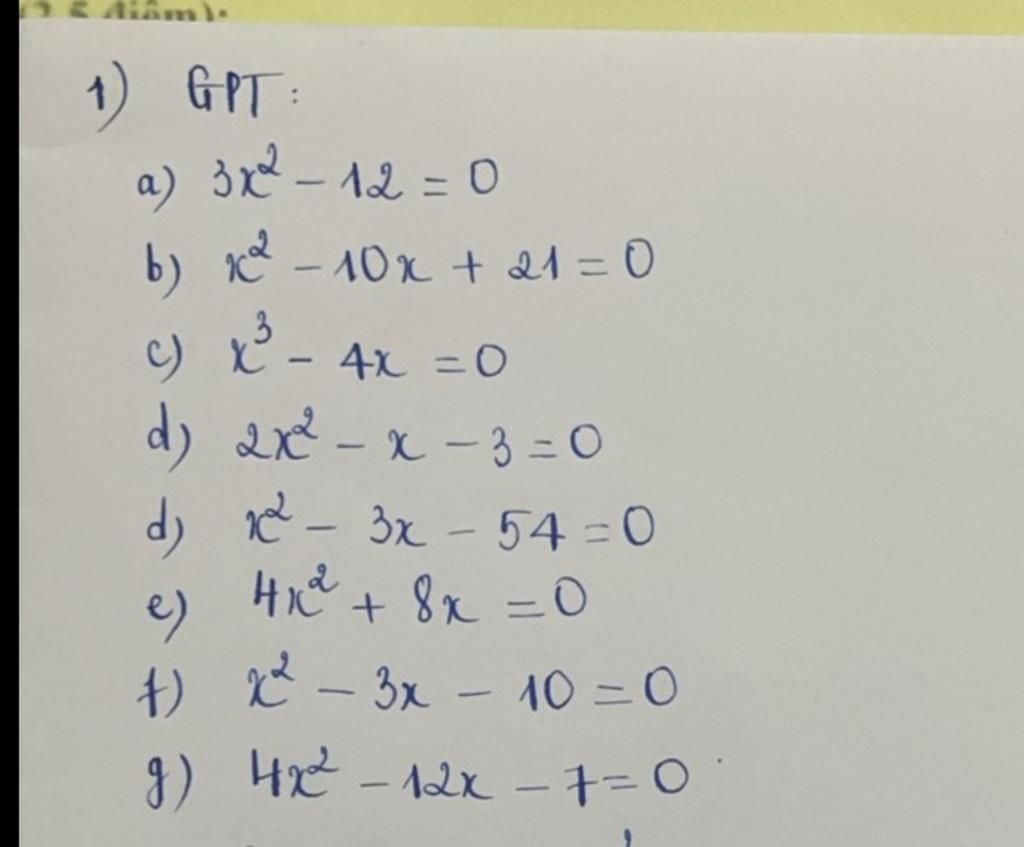 (2,5 điểm):
1) GPT:
a) 3x² - 12 = 0
b) x² - 10x + 21 = 0
c) x³ - 4x = 0
d) 2x² - x - 3 = 0
d) x² - 3x - 54 = 0
e) 4x² + 8x = 0
f) x² - 3x - 10 = 0
g) 4x² - 12x - 7 = 0